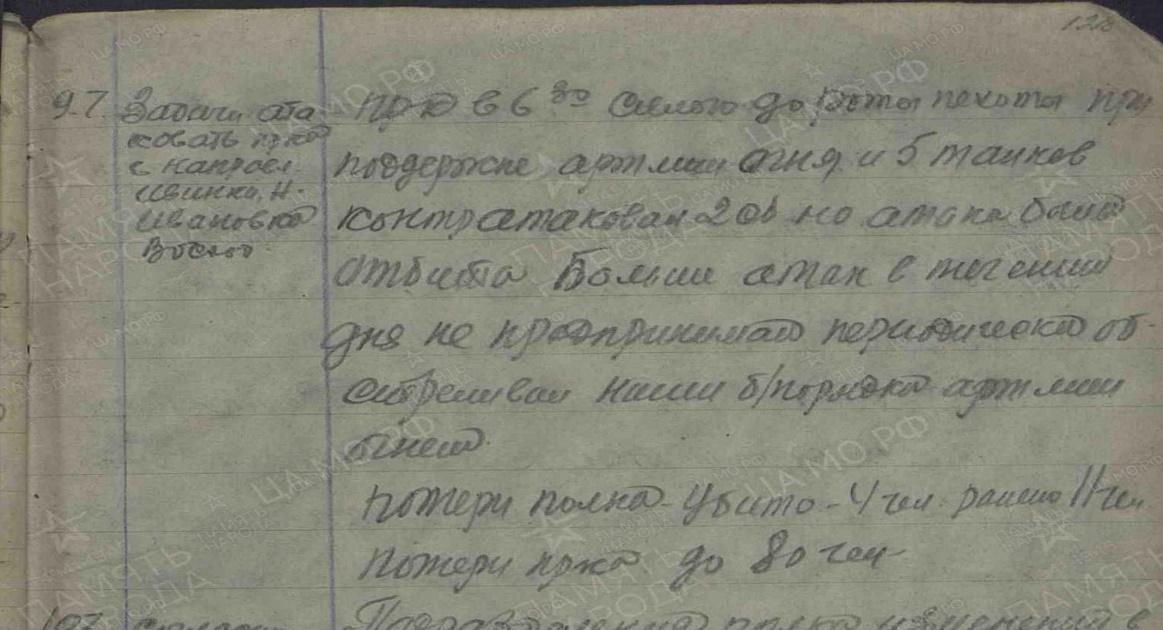 128
9.7. Задачи ата
ковать пр-ка
с направл.
Ивинка, Н.
Ивановка
Пр-к в 6 30 силою до роты пехоты при
поддержке артмин огня и 5 танков
контратаковал 2 сб но атака была
отбита Больше атак в течении
дня не предпринимал периодически об-
стреливал наши б/порядки артмин
огнем
Потери полка - убито - 4 чел. ранено 11 чел
Потери пр-ка до 80 чел
10.7.
Подразделения полка изменений в